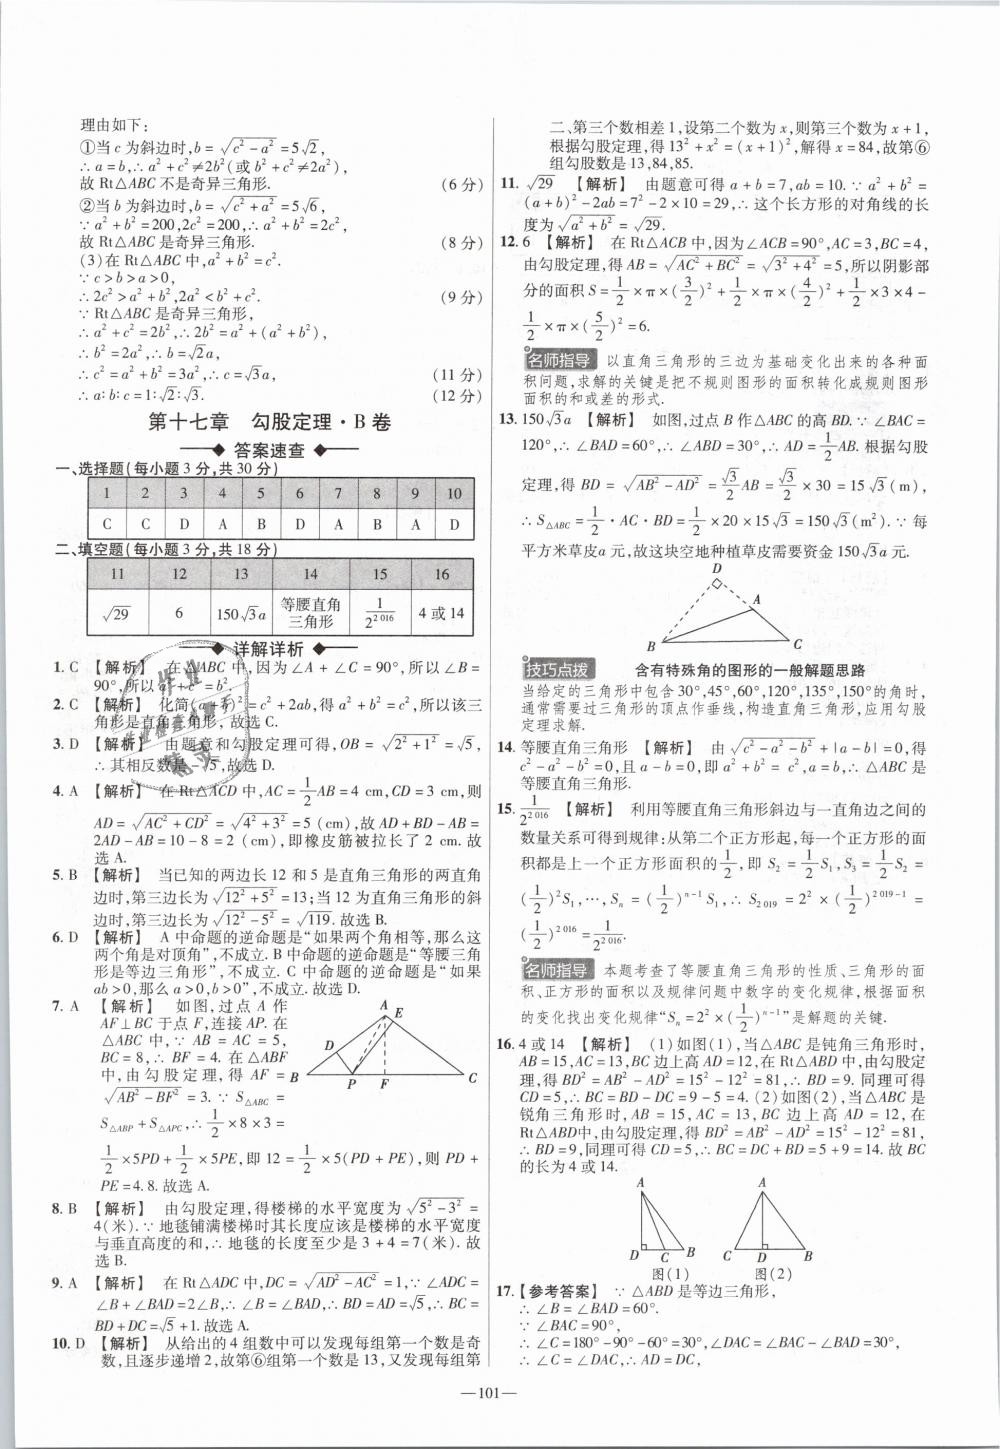 理由如下:
①当 c 为斜边时,b = √(c² − a²) = 5√2,
∴ a = b,∴ a² + c² ≠ 2b² (或 b² + c² ≠ 2a²),
故 Rt△ABC 不是奇异三角形. (6 分)
②当 b 为斜边时,b = √(c² + a²) = 5√6,
∵ a² + b² = 200,2c² = 200,∴ a² + b² = 2c²,
故 Rt△ABC 是奇异三角形. (8 分)
(3)在 Rt△ABC 中,a² + b² = c².
∵ c > b > a > 0,
∴ 2c² > a² + b²,2a² < b² + c². (9 分)
∵ Rt△ABC 是奇异三角形,
∴ a² + c² = 2b²,∴ 2b² = a² + (a² + b²),
∴ b² = 2a²,∴ b = √2a,
∴ c² = a² + b² = 3a²,∴ c = √3a, (11 分)
∴ a∶b∶c = 1∶√2∶√3. (12 分)
第十七章 勾股定理·B 卷
答案速查
一、选择题(每小题 3 分,共 30 分)
1 2 3 4 5 6 7 8 9 10
C C D A B D A B A D
二、填空题(每小题 3 分,共 18 分)
11 12 13 14 15 16
√29 6 150√3a 等腰直角三角形 1/2^2 016 4 或 14
详解详析
1. C 【解析】 在△ABC 中,因为∠A + ∠C = 90°,所以∠B =
90°,所以 a² + c² = b².
2. C 【解析】 化简(a + b)² = c² + 2ab,得 a² + b² = c²,所以该三
角形是直角三角形,故选 C.
3. D 【解析】 由题意和勾股定理可得,OB = √(2² + 1²) = √5,
∴ 其相反数是 −√5,故选 D.
4. A 【解析】 在 Rt△ACD 中,AC = 1/2 AB = 4 cm,CD = 3 cm,则
AD = √(AC² + CD²) = √(4² + 3²) = 5 (cm),故 AD + BD − AB =
2AD − AB = 10 − 8 = 2 (cm),即橡皮筋被拉长了 2 cm. 故
选 A.
5. B 【解析】 当已知的两边长 12 和 5 是直角三角形的两直角
边时,第三边长为√(12² + 5²) = 13;当 12 为直角三角形的斜
边时,第三边长为√(12² − 5²) = √119. 故选 B.
6. D 【解析】 A 中命题的逆命题是“如果两个角相等,那么这
两个角是对顶角”,不成立. B 中命题的逆命题是“等腰三角
形是等边三角形”,不成立. C 中命题的逆命题是“如果
ab > 0,那么 a > 0,b > 0”,不成立. 故选 D.
7. A 【解析】 如图,过点 A 作
AF⊥BC 于点 F,连接 AP. 在
△ABC 中,∵ AB = AC = 5,
BC = 8,∴ BF = 4. 在△ABF
中,由勾股定理,得 AF =
√(AB² − BF²) = 3. ∵ S△ABC =
S△ABP + S△APC,∴ 1/2 × 8 × 3 =
1/2 × 5PD + 1/2 × 5PE,即 12 = 1/2 × 5(PD + PE),则 PD +
PE = 4.8. 故选 A.
A E D B P F C
8. B 【解析】 由勾股定理,得楼梯的水平宽度为√(5² − 3²) =
4(米). ∵ 地毯铺满楼梯时其长度应该是楼梯的水平宽度
与垂直高度的和,∴ 地毯的长度至少是 3 + 4 = 7(米). 故
选 B.
9. A 【解析】 在 Rt△ADC 中,DC = √(AD² − AC²) = 1,∵ ∠ADC =
∠B + ∠BAD = 2∠B,∴ ∠B = ∠BAD,∴ BD = AD = √5,∴ BC =
BD + DC = √5 + 1. 故选 A.
10. D 【解析】 从给出的 4 组数中可以发现每组第一个数是奇
数,且逐步递增 2,故第⑥组第一个数是 13,又发现每组第
二、第三个数相差 1,设第二个数为 x,则第三个数为 x + 1,
根据勾股定理,得 13² + x² = (x + 1)²,解得 x = 84,故第⑥
组勾股数是 13,84,85.
11. √29 【解析】 由题意可得 a + b = 7,ab = 10. ∵ a² + b² =
(a + b)² − 2ab = 7² − 2 × 10 = 29,∴ 这个长方形的对角线的长
度为√(a² + b²) = √29.
12. 6 【解析】 在 Rt△ACB 中,因为∠ACB = 90°,AC = 3,BC = 4,
由勾股定理,得 AB = √(AC² + BC²) = √(3² + 4²) = 5,所以阴影部
分的面积 S = 1/2 × π × (3/2)² + 1/2 × π × (4/2)² + 1/2 × 3 × 4 −
1/2 × π × (5/2)² = 6.
名师指导 以直角三角形的三边为基础变化出来的各种面
积问题,求解的关键是把不规则图形的面积转化成规则图形
面积的和或差的形式.
13. 150√3a 【解析】 如图,过点 B 作△ABC 的高 BD. ∵ ∠BAC =
120°,∴ ∠BAD = 60°,∴ ∠ABD = 30°,∴ AD = 1/2 AB. 根据勾股
定理,得 BD = √(AB² − AD²) = √3/2 AB = √3/2 × 30 = 15√3(m),
∴ S△ABC = 1/2 · AC · BD = 1/2 × 20 × 15√3 = 150√3(m²). ∵ 每
平方米草皮a 元,故这块空地种植草皮需要资金 150√3a 元.
D A B C
技巧点拨 含有特殊角的图形的一般解题思路
当给定的三角形中包含 30°,45°,60°,120°,135°,150°的角时,
通常需要过三角形的顶点作垂线,构造直角三角形,应用勾股
定理求解.
14. 等腰直角三角形 【解析】 由√(c² − a² − b²) + |a − b| = 0,得
c² − a² − b² = 0,且 a − b = 0,即 a² + b² = c²,a = b,∴ △ABC 是
等腰直角三角形.
15. 1/2^2 016 【解析】 利用等腰直角三角形斜边与一直角边之间的
数量关系可得到规律:从第二个正方形起,每一个正方形的面
积都是上一个正方形面积的 1/2,即 S₂ = 1/2 S₁,S₃ = 1/2 S₂ =
(1/2)² S₁,…,Sₙ = (1/2)ⁿ⁻¹ S₁,∴ S₂ ₀₁₉ = 2² × (1/2)^(2 019−1) =
(1/2)^2 016 = 1/2^2 016.
名师指导 本题考查了等腰直角三角形的性质、三角形的面
积、正方形的面积以及规律问题中数字的变化规律,根据面积
的变化找出变化规律“Sₙ = 2² × (1/2)ⁿ⁻¹”是解题的关键.
16. 4 或 14 【解析】 (1)如图(1),当△ABC 是钝角三角形时,
AB = 15,AC = 13,BC 边上高 AD = 12,在 Rt△ABD 中,由勾股定
理,得 BD² = AB² − AD² = 15² − 12² = 81,∴ BD = 9. 同理可得
CD = 5,∴ BC = BD − DC = 9 − 5 = 4. (2)如图(2),当△ABC 是
锐角三角形时,AB = 15,AC = 13,BC 边上高 AD = 12,在
Rt△ABD中,由勾股定理,得 BD² = AB² − AD² = 15² − 12² = 81,
∴ BD = 9,同理可得 CD = 5,∴ BC = DC + BD = 5 + 9 = 14. 故 BC
的长为 4 或 14.
A D C B
图(1)
A C D B
图(2)
17. 【参考答案】 ∵ △ABD 是等边三角形,
∴ ∠B = ∠BAD = 60°.
∵ ∠BAC = 90°,
∴ ∠C = 180° − 90° − 60° = 30°,∠DAC = ∠BAC − ∠BAD = 30°,
∴ ∠C = ∠DAC,∴ AD = DC,
— 101 —